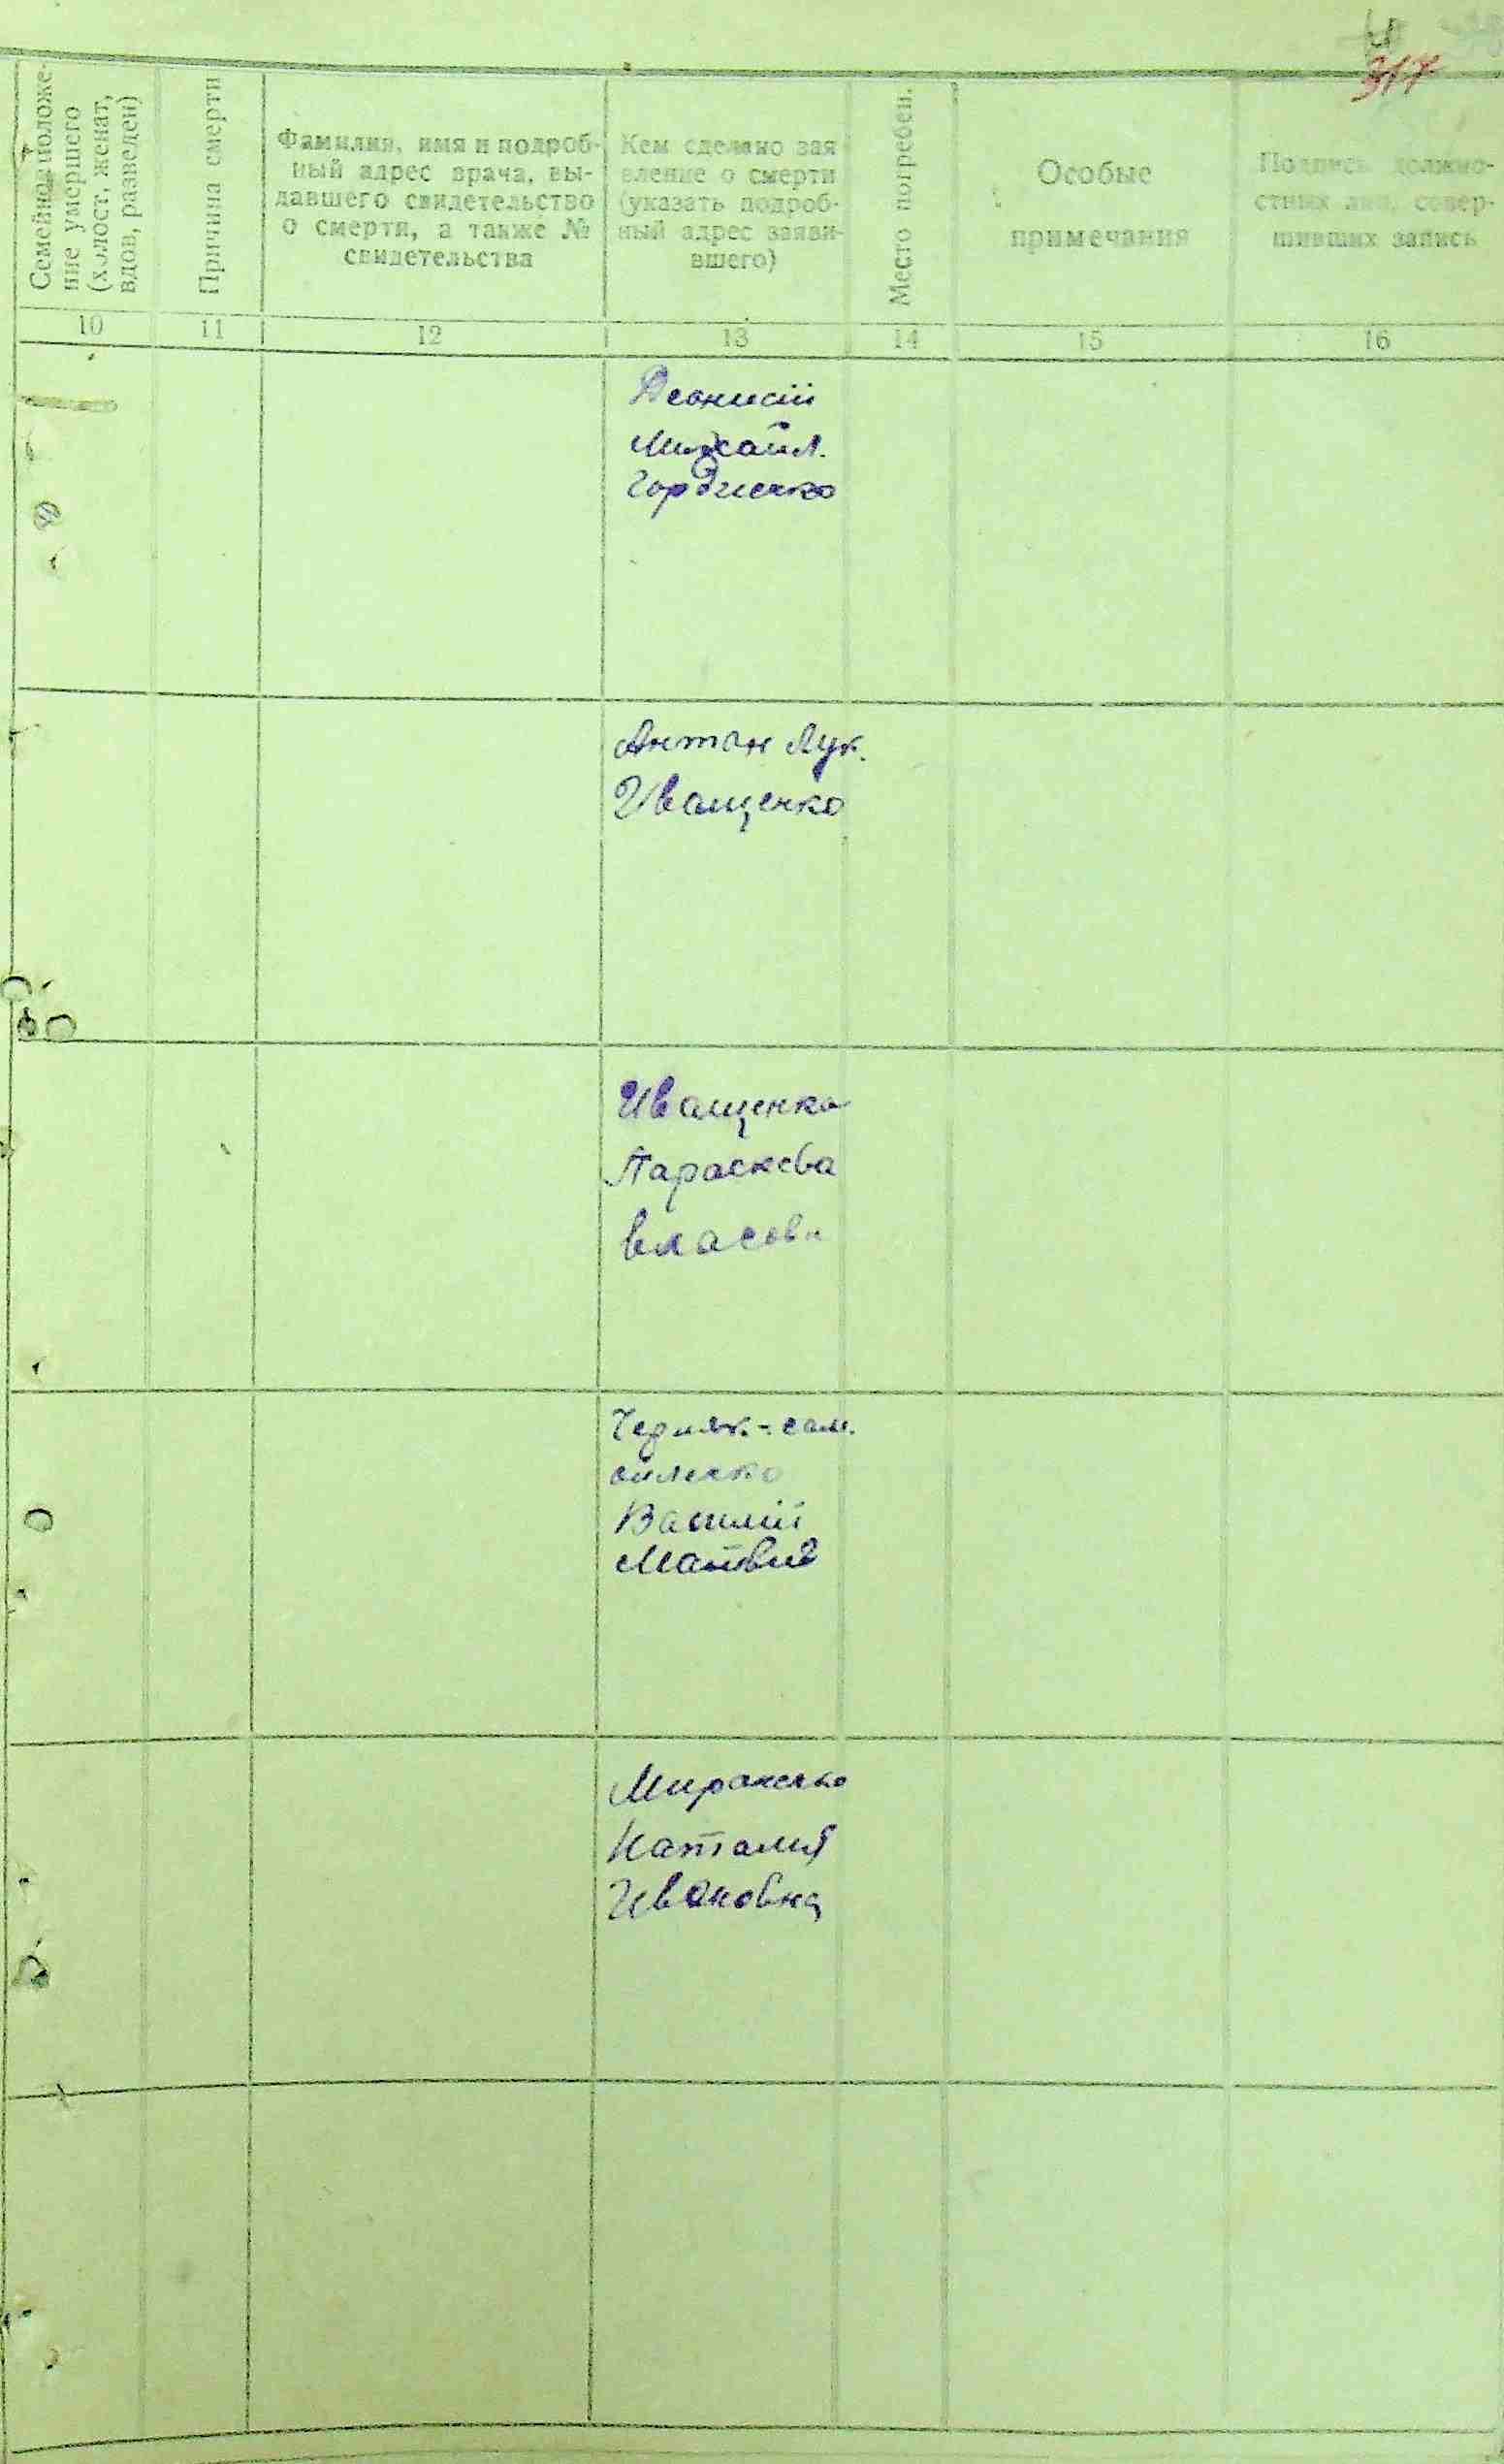 317
Семейное положе-
ние умершего
(холост, женат,
вдов, разведен)
Причина смерти
Фамилия, имя и подроб-
ный адрес врача, вы-
давшего свидетельство
о смерти, а также №
свидетельства
Кем сделано зая
вление о смерти
(указать подроб-
ный адрес заяви-
вшего)
Место погребен.
Особые
примечания
Подпись должно-
стных лиц, совер-
шивших запись
10
11
12
13
14
15
16
Деонисий
Михайл.
Гордиенко
Антон Лук.
Иващенко
Иващенко
Параскева
Власовн
Черняк.-сам.
ойленко
Василий
Матвие
Мироненко
Наталия
Ивановна